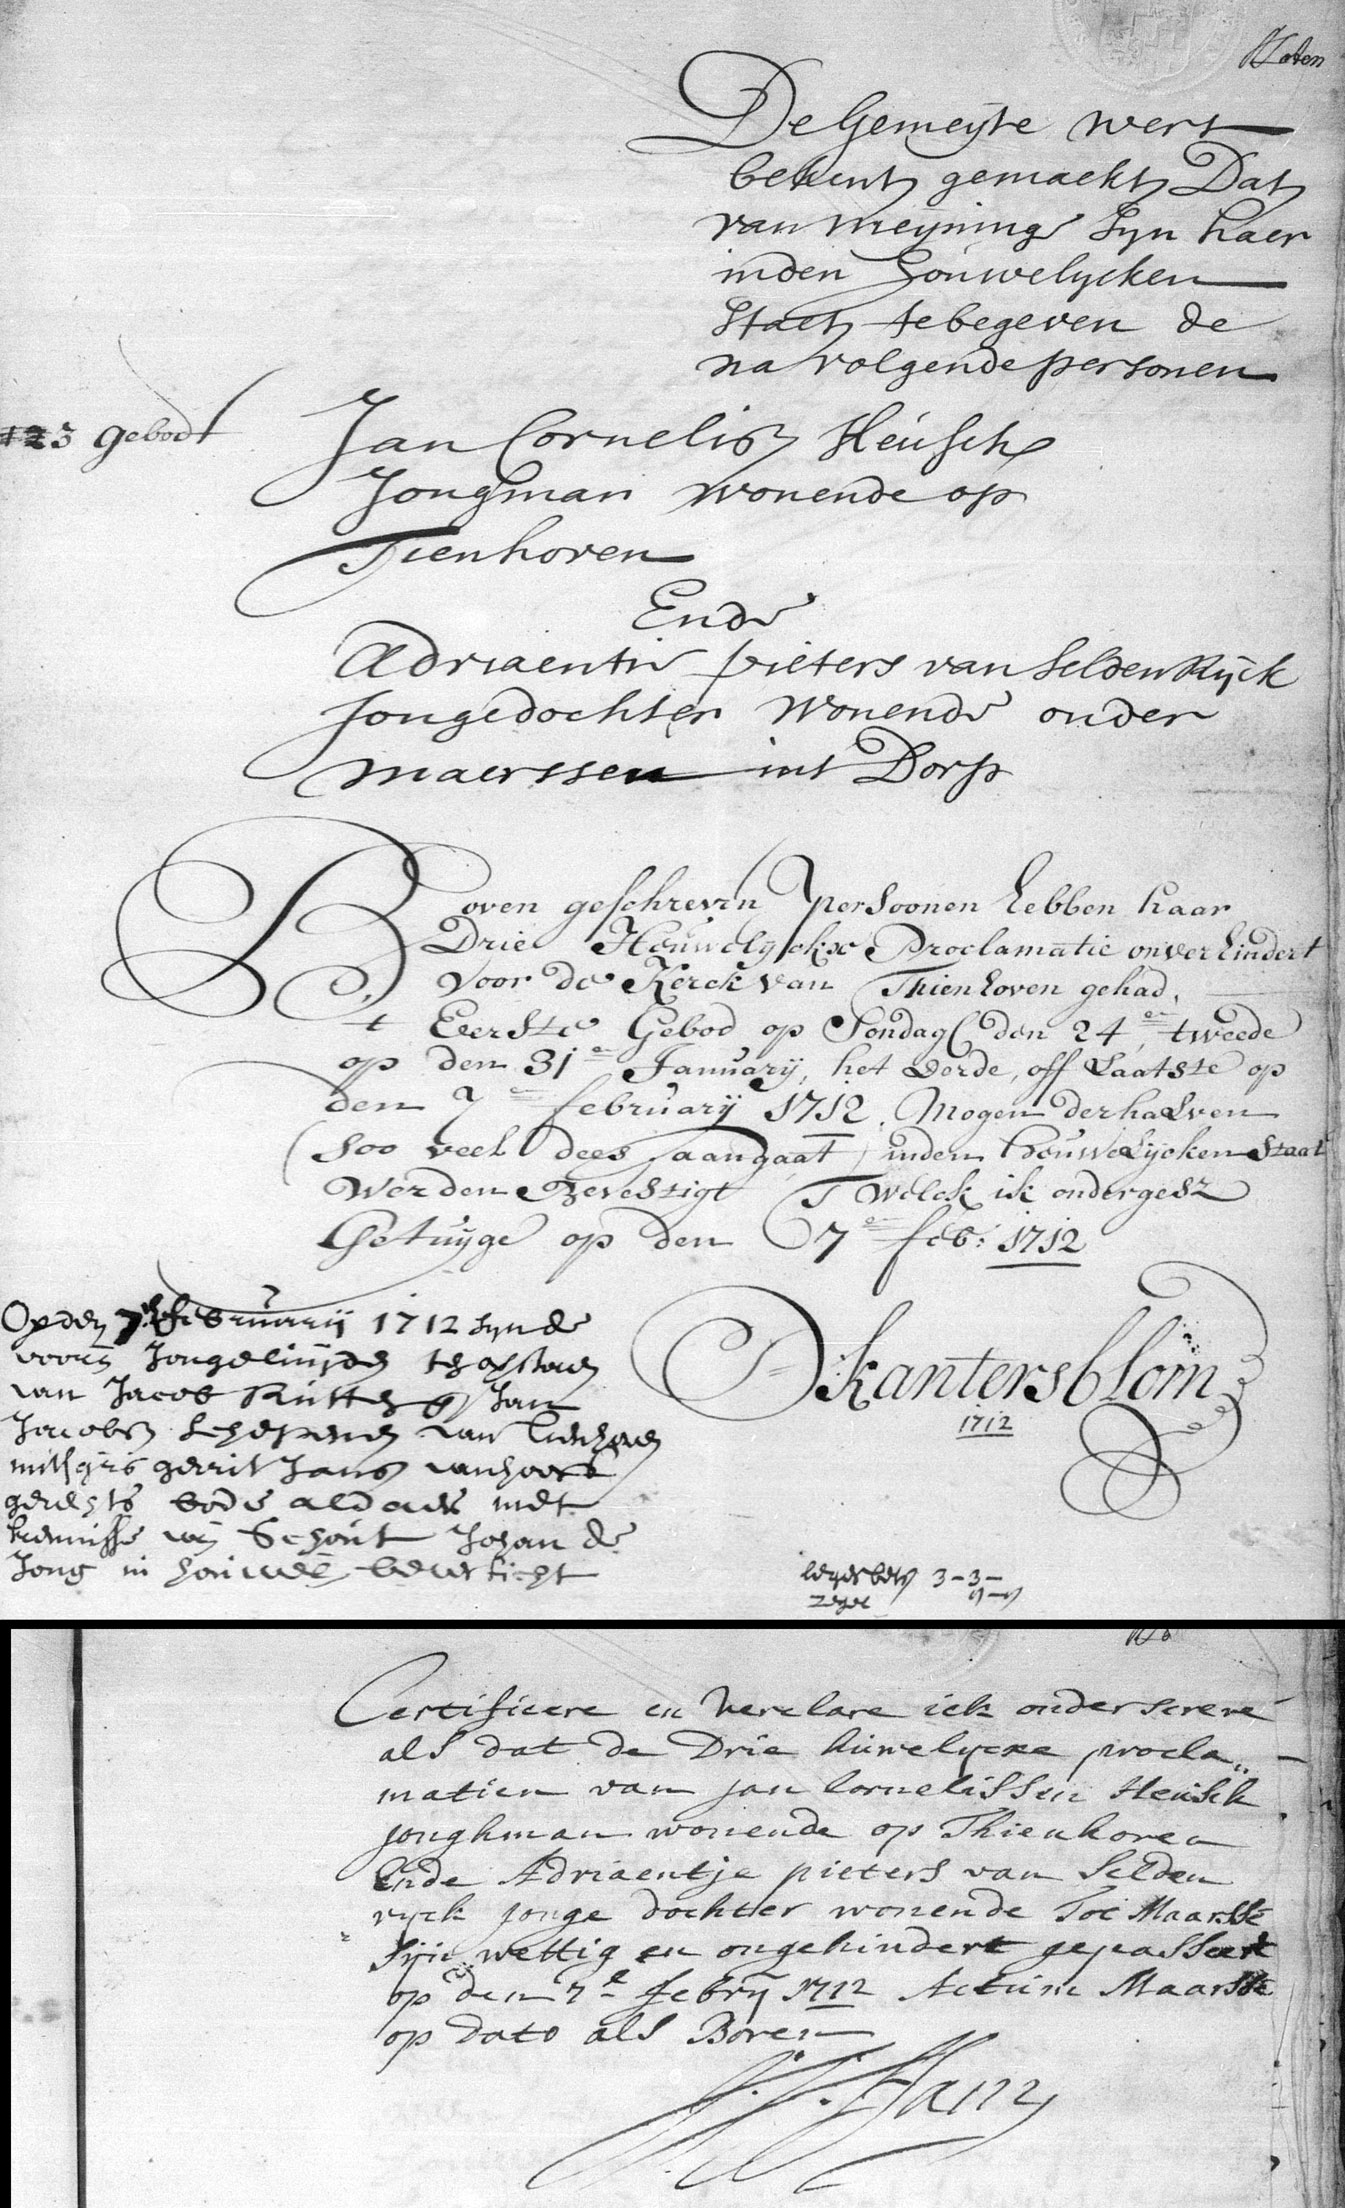 De Gemeijte wert
bekent gemaekt Dat
van meijninge Sijn haer
inden houwelijcken
staet te begeven de
na volgende personen
123 gebodt
Jan Cornelisz Heusch
Jongman wonende op
Tienhoven
Ende
Adriaentie pieters van seldenRijck
Jongedochter wonende onder
maerssen int Dorp
Boven geschreven persoonen hebben haar
Drie Houwelijckxe Proclamatie onverhindert
voor de Kerck van Thienhoven gehad,
t Eerste Gebod op Sondag den 24en, tweede
op den 31en January, het derde, off Laatste op
den 7en february 1712. Mogen derhalven
(soo veel dees aangaat) inden houwelijcken staat
werden Bevestigt T welck ik ondergesz
Getuijge op den 7en feb: 1712
D kantersblom
1712
Op den 7e februarij 1712 sijn de
voorn Jongeluijden ten
van Jacob Rutten en Jan
Jacobsz schepenen van Tienhoven
mitsgrs gerrit Jansz
gerechts bode aldaer met
kennisse van Schout Johan de
Jong in houwel bevesticht
3-3-
zegel
Certificere en Verclare ick onderscreve
als dat de Drie huwelycxe procla„
matien van jan Cornelissen Heusch
jonghman wonende op Thienhoven
Ende Adriaentje pieters van Selden
ryck jonge dochter wonende Toe Maarsse
Sijn wettig en ongehindert gepasseert
op den 7e febry 1712 Actum Maarsse
op dato als Boven